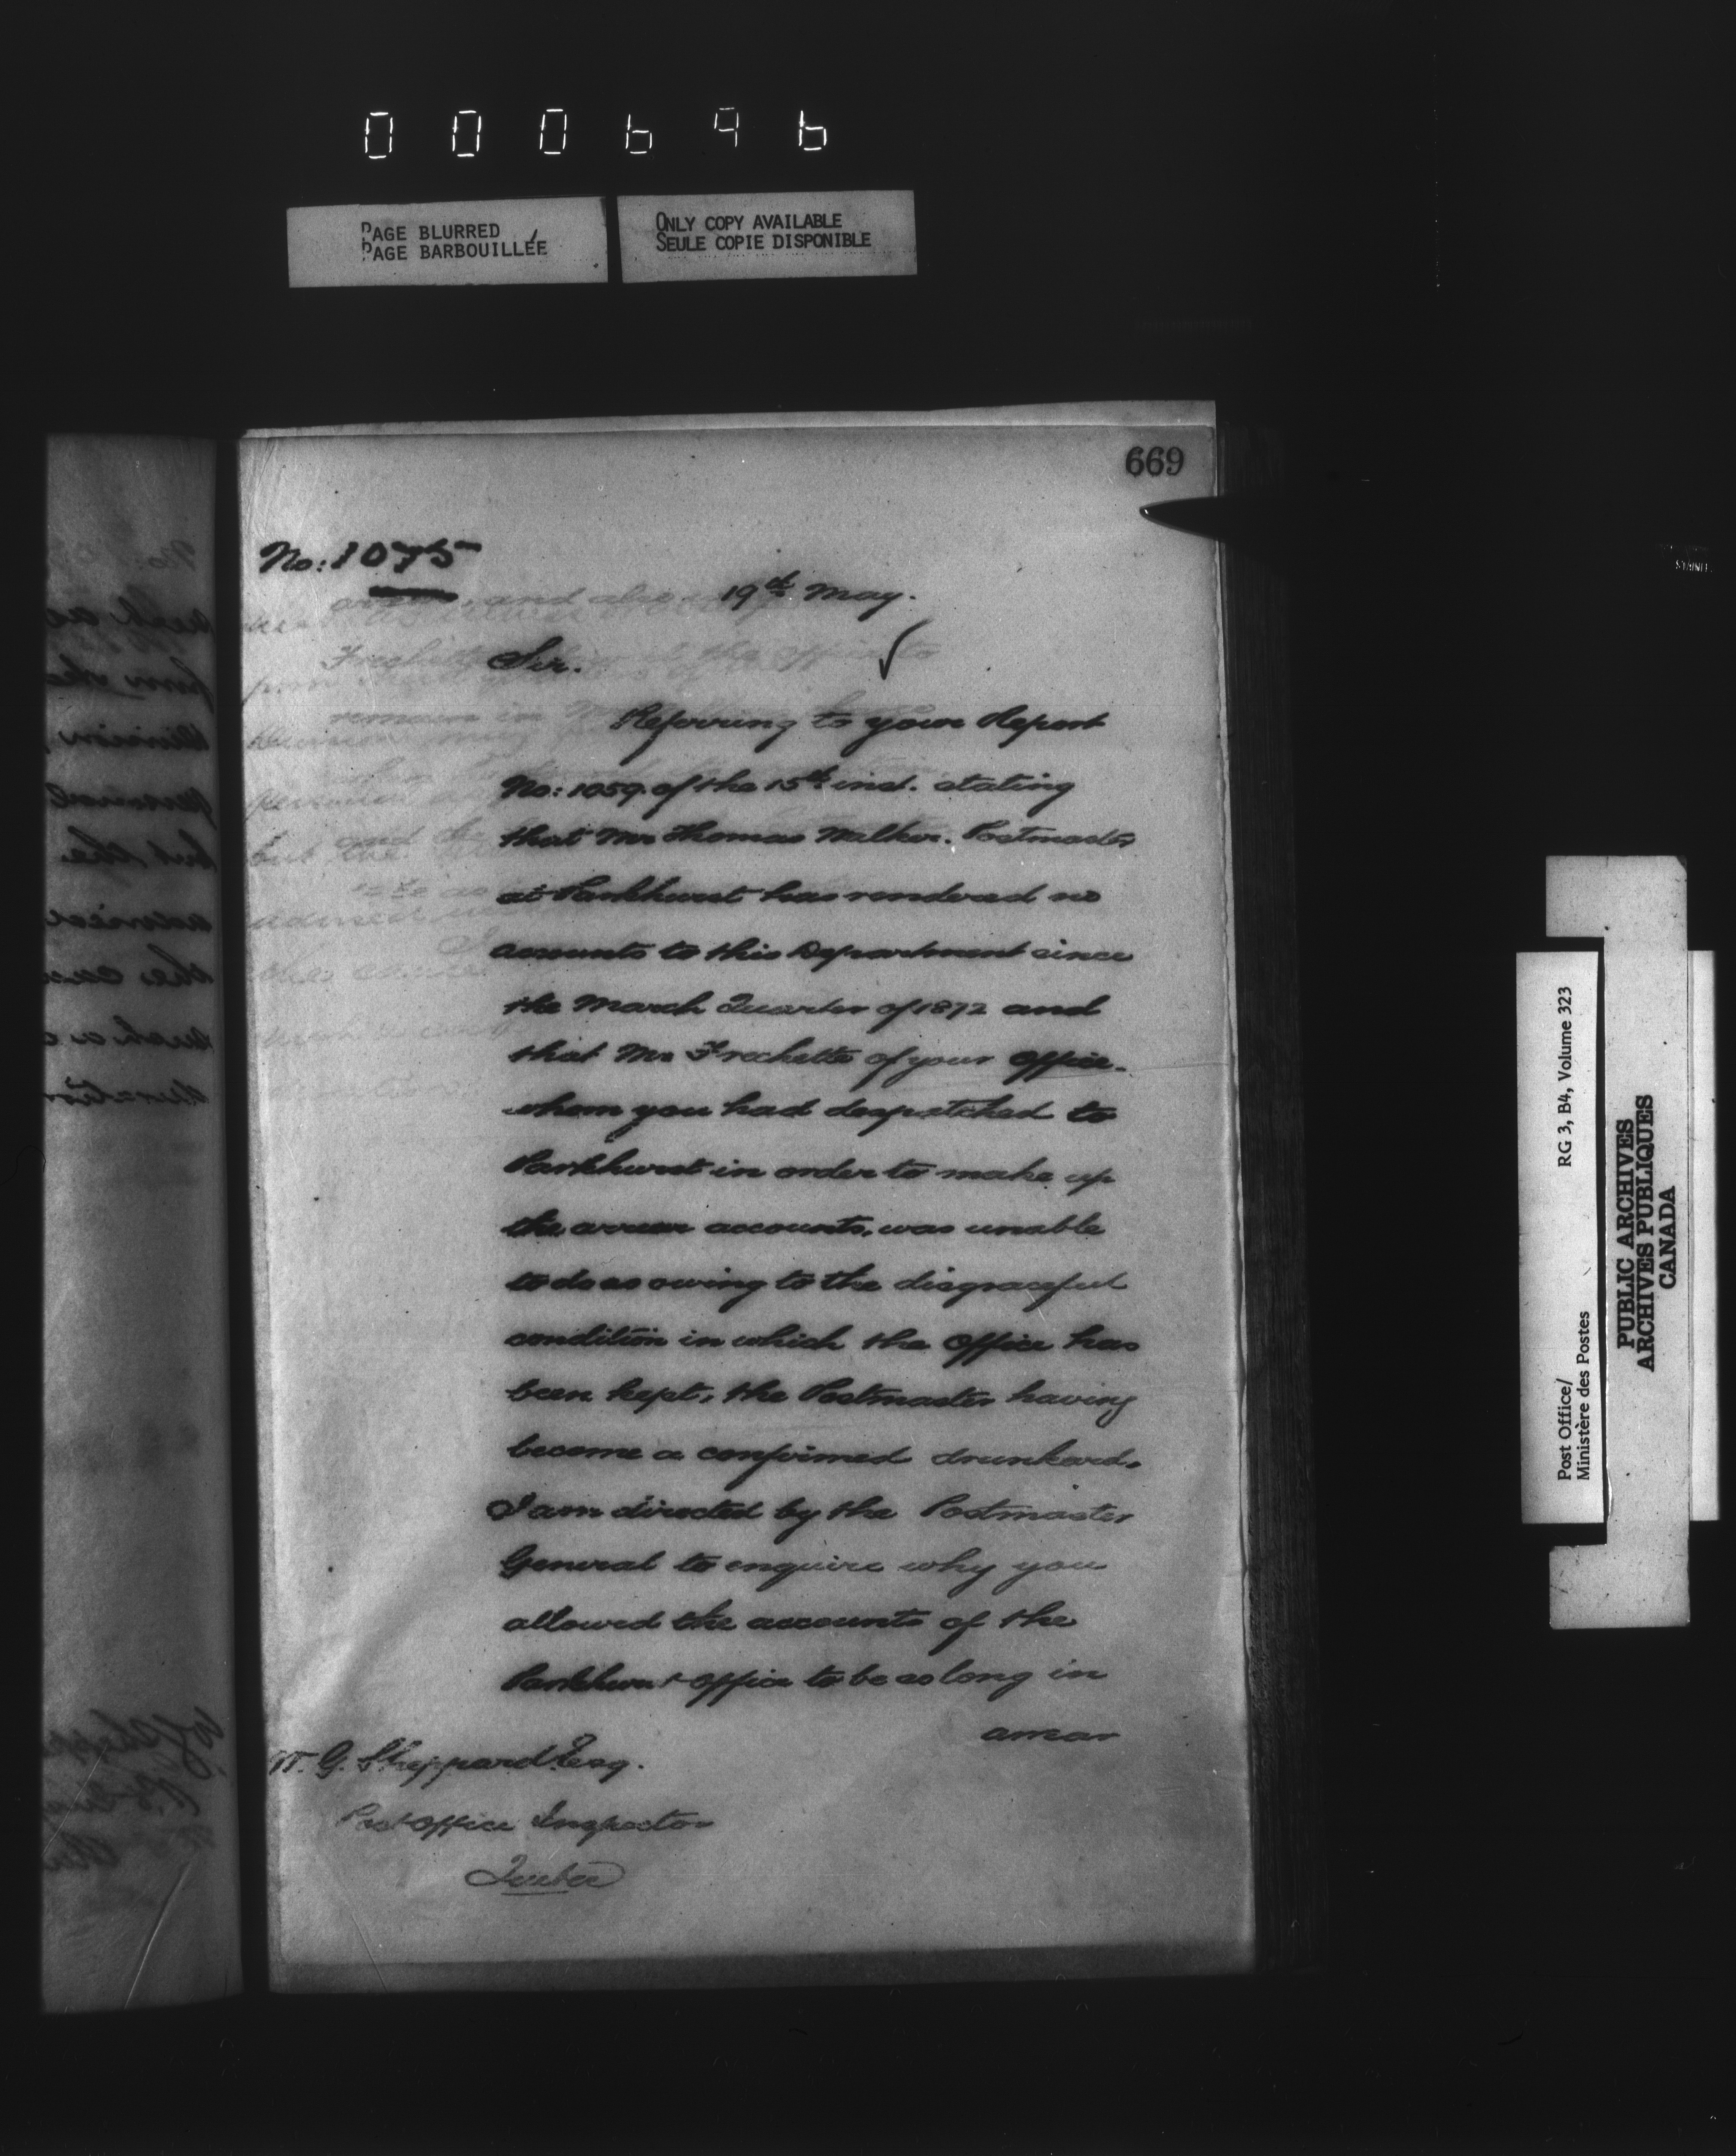 000696
PAGE BLURRED
PAGE BARBOUILLÉE
ONLY COPY AVAILABLE
SEULE COPIE DISPONIBLE
669
No: 1075
19th May.
Sir.
Referring to your Report
No: 1059. of the 15th inst. stating
that Mr Thomas Walker. Postmaster
at Parkhurst has rendered no
accounts to this Department since
the March Quarter of 1872 and
that Mr Frechette of your office.
whom you had despatched to
Parkhurst in order to make up
the arrear accounts, was unable
to do so owing to the disgraceful
condition in which the Office has
been kept, the Postmaster having
become a confirmed drunkard.
I am directed by the Postmaster
General to enquire why you
allowed the accounts of the
Parkhurst Office to be so long in
arrear
W. G. Sheppard Esq.
Post Office Inspector
Quebec
Post Office/
Ministère des Postes
RG 3, B4, Volume 323
PUBLIC ARCHIVES
ARCHIVES PUBLIQUES
CANADA